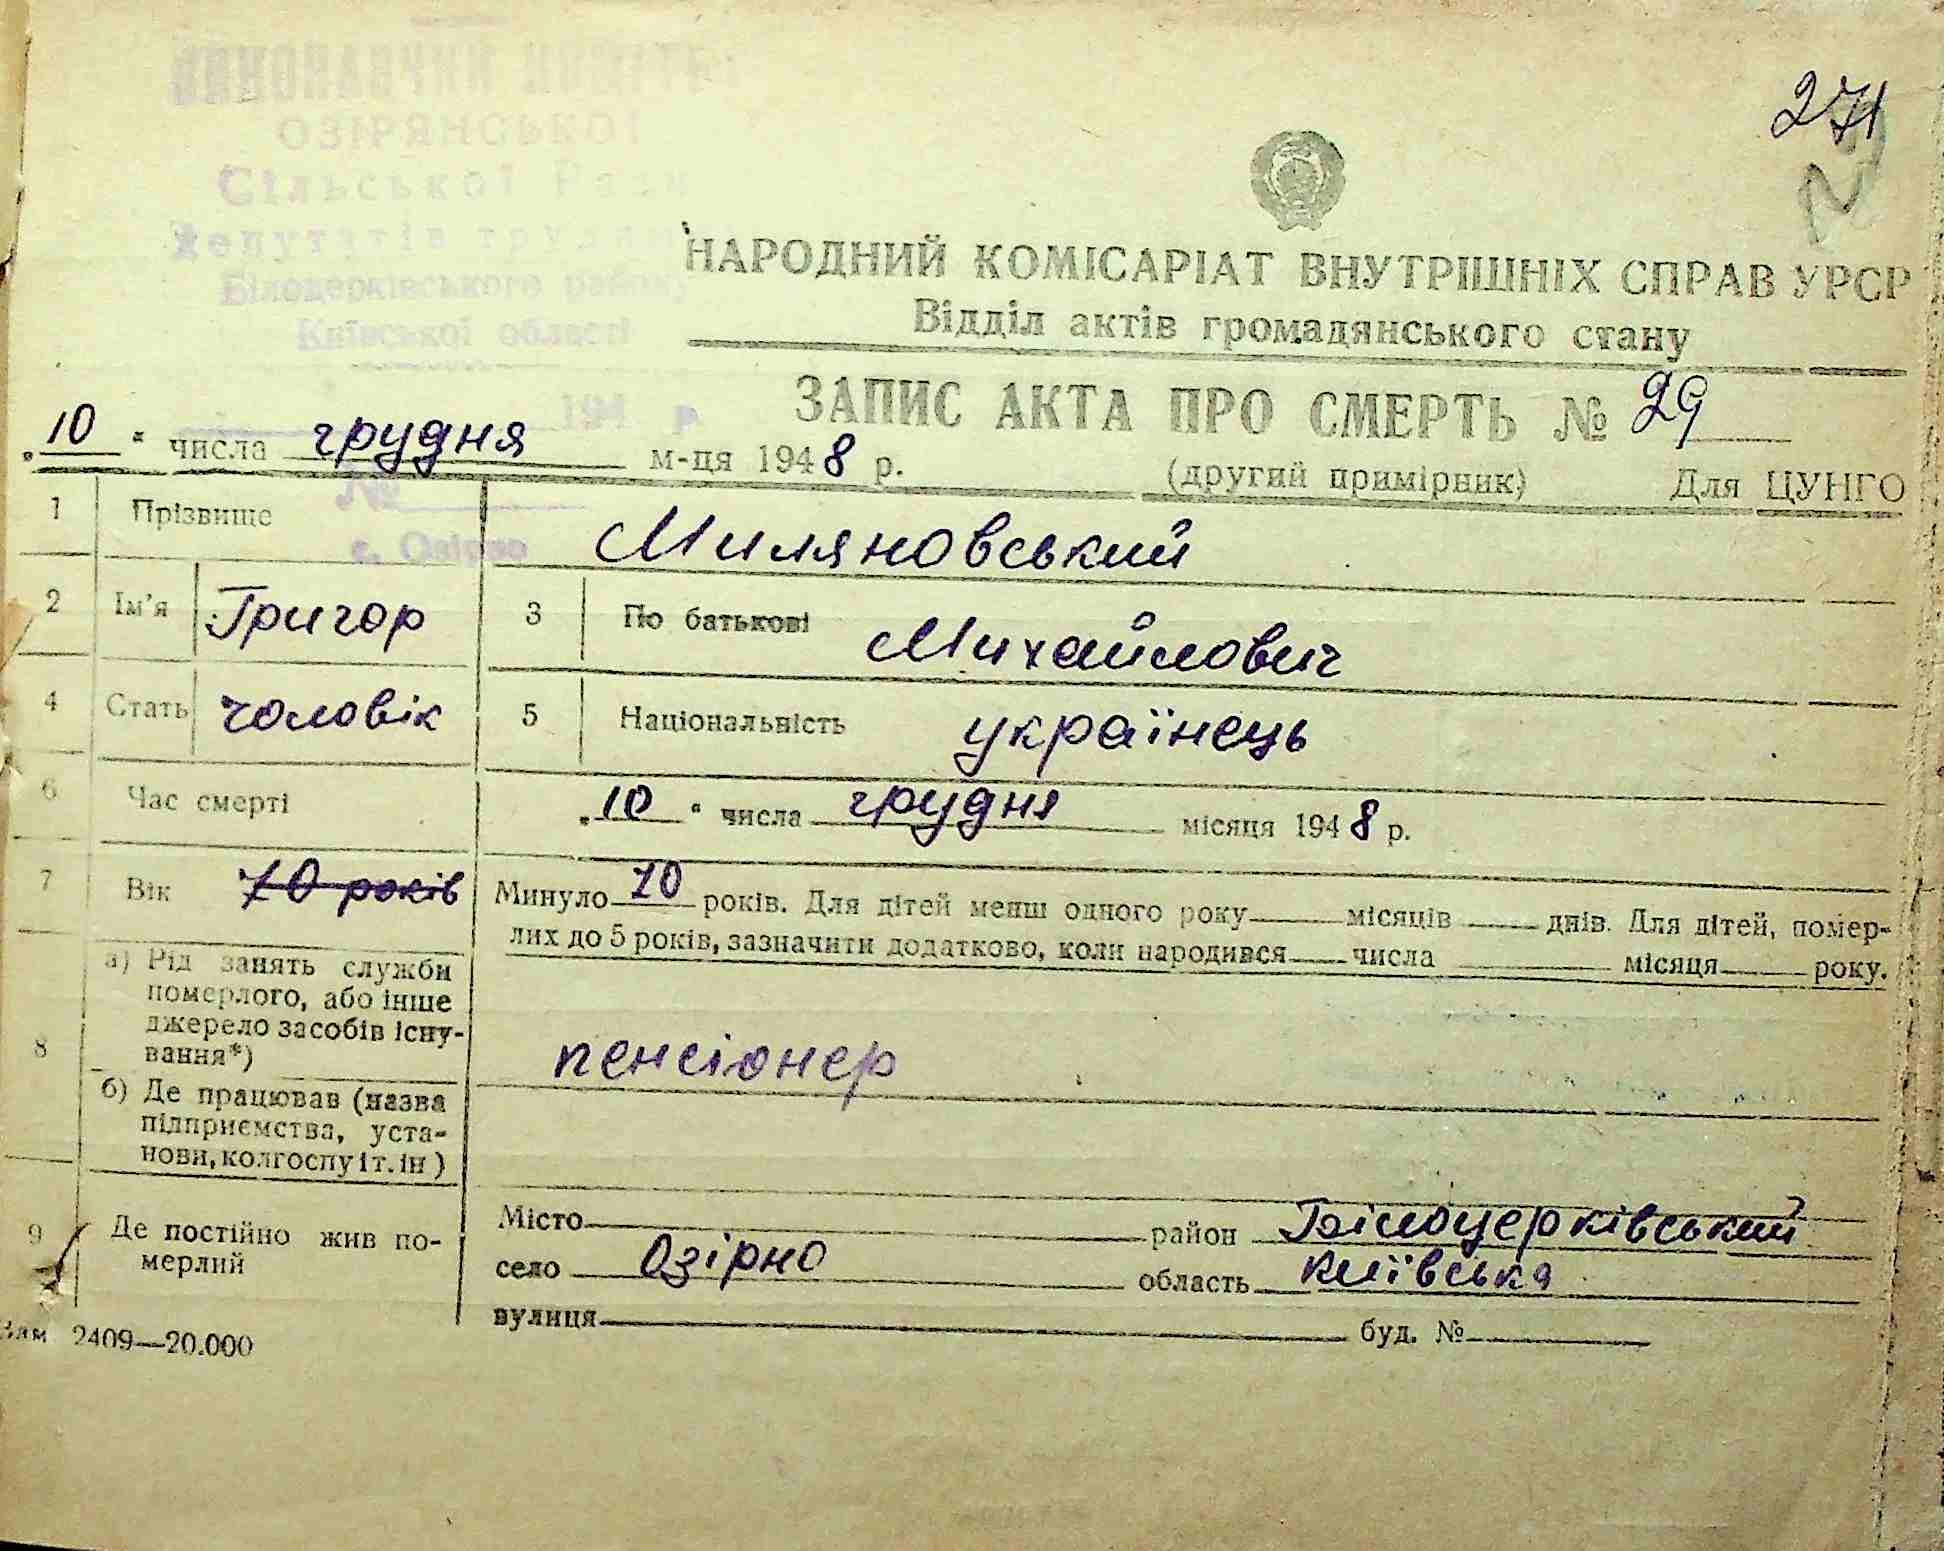 ВИКОНАВЧИЙ КОМІТЕТ
ОЗІРЯНСЬКОЇ
Сільської Ради
Депутатів трудящ
Білоцерківського району
Київської області
194 р.
№
с. Озірно
271
НАРОДНИЙ КОМІСАРІАТ ВНУТРІШНІХ СПРАВ УРСР
Відділ актів громадянського стану
ЗАПИС АКТА ПРО СМЕРТЬ № 29
„10“ числа грудня м-ця 1948 р.
(другий примірник) Для ЦУНГО
1 Прізвище Миляновський
2 Ім'я Григор 3 По батькові Михайлович
4 Стать чоловік 5 Національність українець
6 Час смерті „10“ числа грудня місяця 1948 р.
7 Вік 70 років Минуло 70 років. Для дітей менш одного року місяців днів. Для дітей, помер-
лих до 5 років, зазначити додатково, коли народився числа місяця року.
8 а) Рід занять служби
померлого, або інше
джерело засобів існу-
вання*) пенсіонер
б) Де працював (назва
підприємства, уста-
нови, колгоспу і т. ін )
9 Де постійно жив по-
мерлий
Місто район Білоцерківський
село Озірно область Київська
вулиця буд. №
Зам 2409—20.000